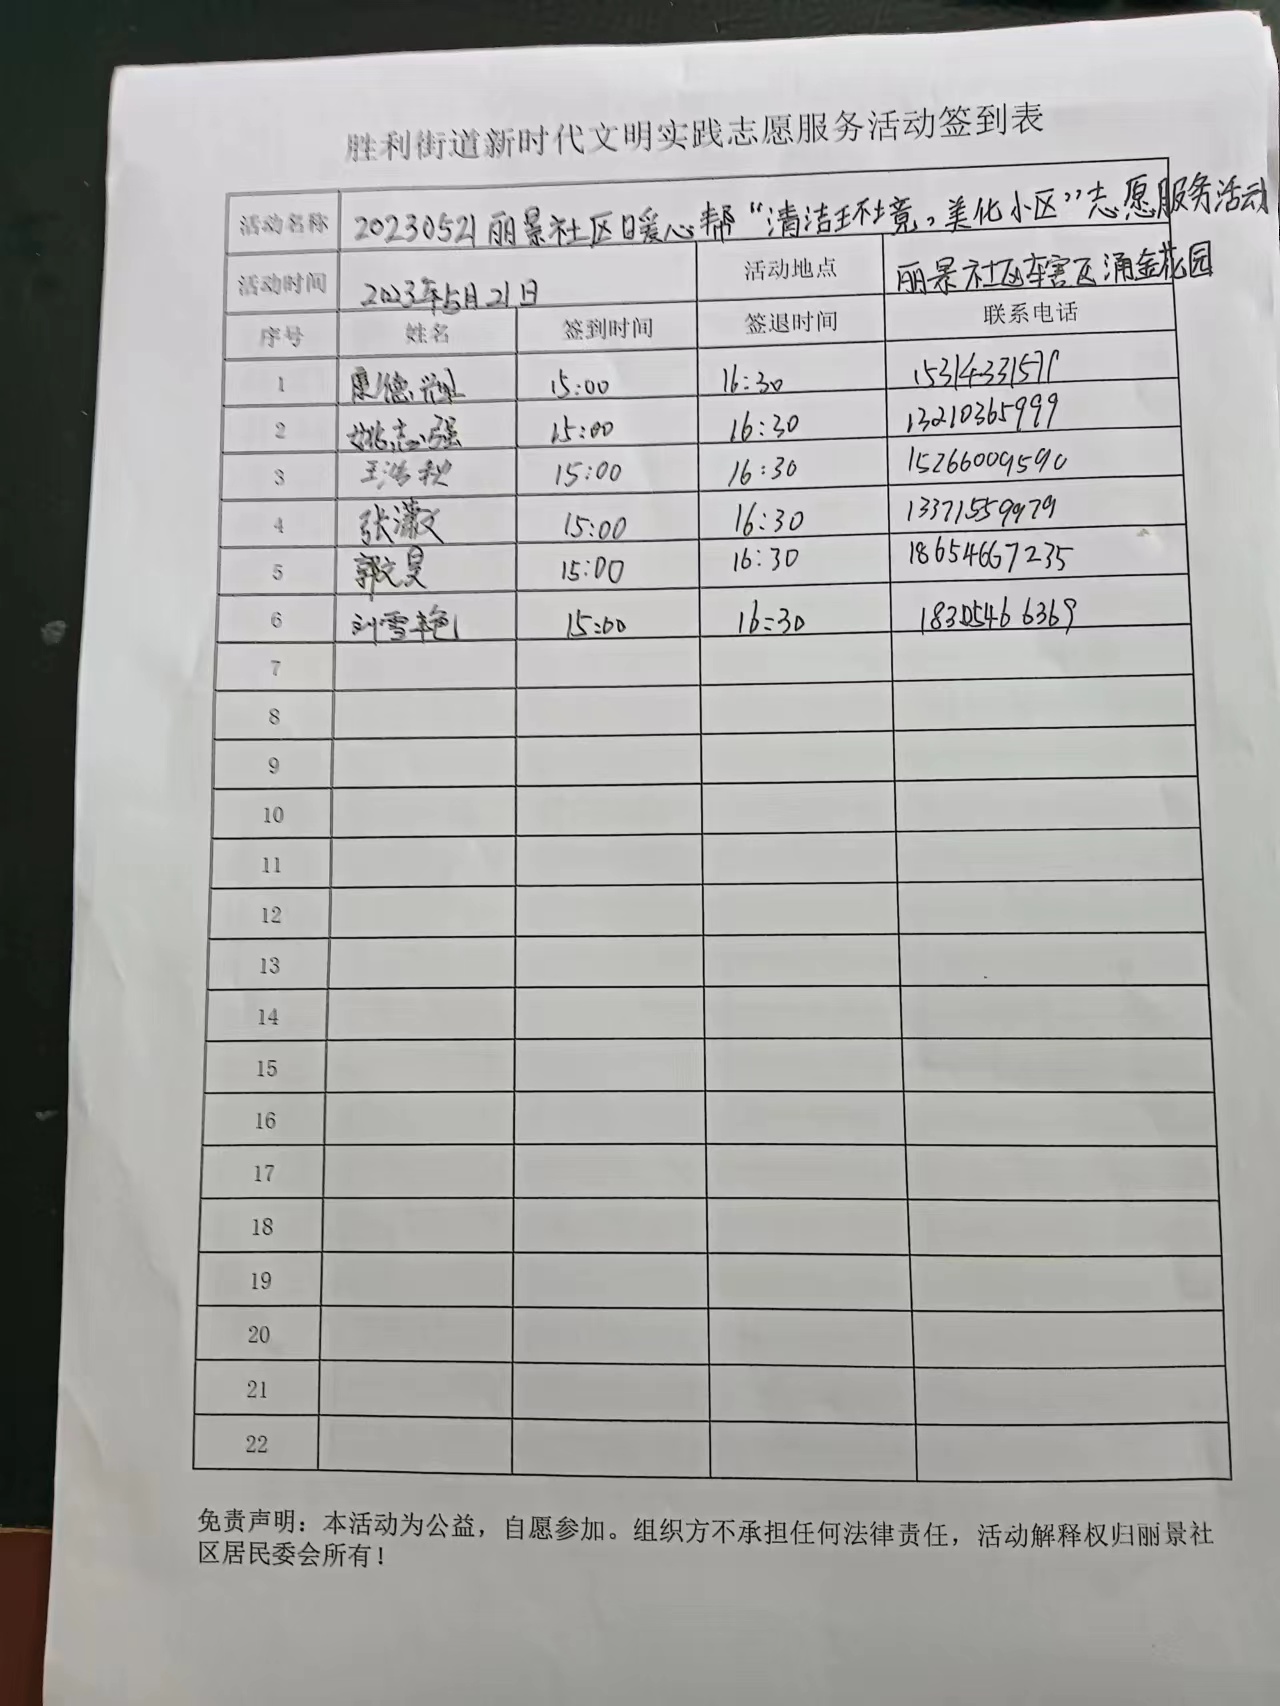 胜利街道新时代文明实践志愿服务活动签到表
活动名称 20230521丽景社区暖心帮“清洁环境，美化小区”志愿服务活动
活动时间 2023年5月21日 活动地点 丽景社区辖区涌金花园
序号 姓名 签到时间 签退时间 联系电话
1 15:00 16:30
2 姚志强 15:00 16:30 13210365999
3 王浩秋 15:00 16:30 15266009590
4 张潇文 15:00 16:30 13371559979
5 郭文昊 15:00 16:30 18654667235
6 刘雪艳 15:00 16:30 18305466369
7
8
9
10
11
12
13
14
15
16
17
18
19
20
21
22
免责声明：本活动为公益，自愿参加。组织方不承担任何法律责任，活动解释权归丽景社
区居民委会所有！